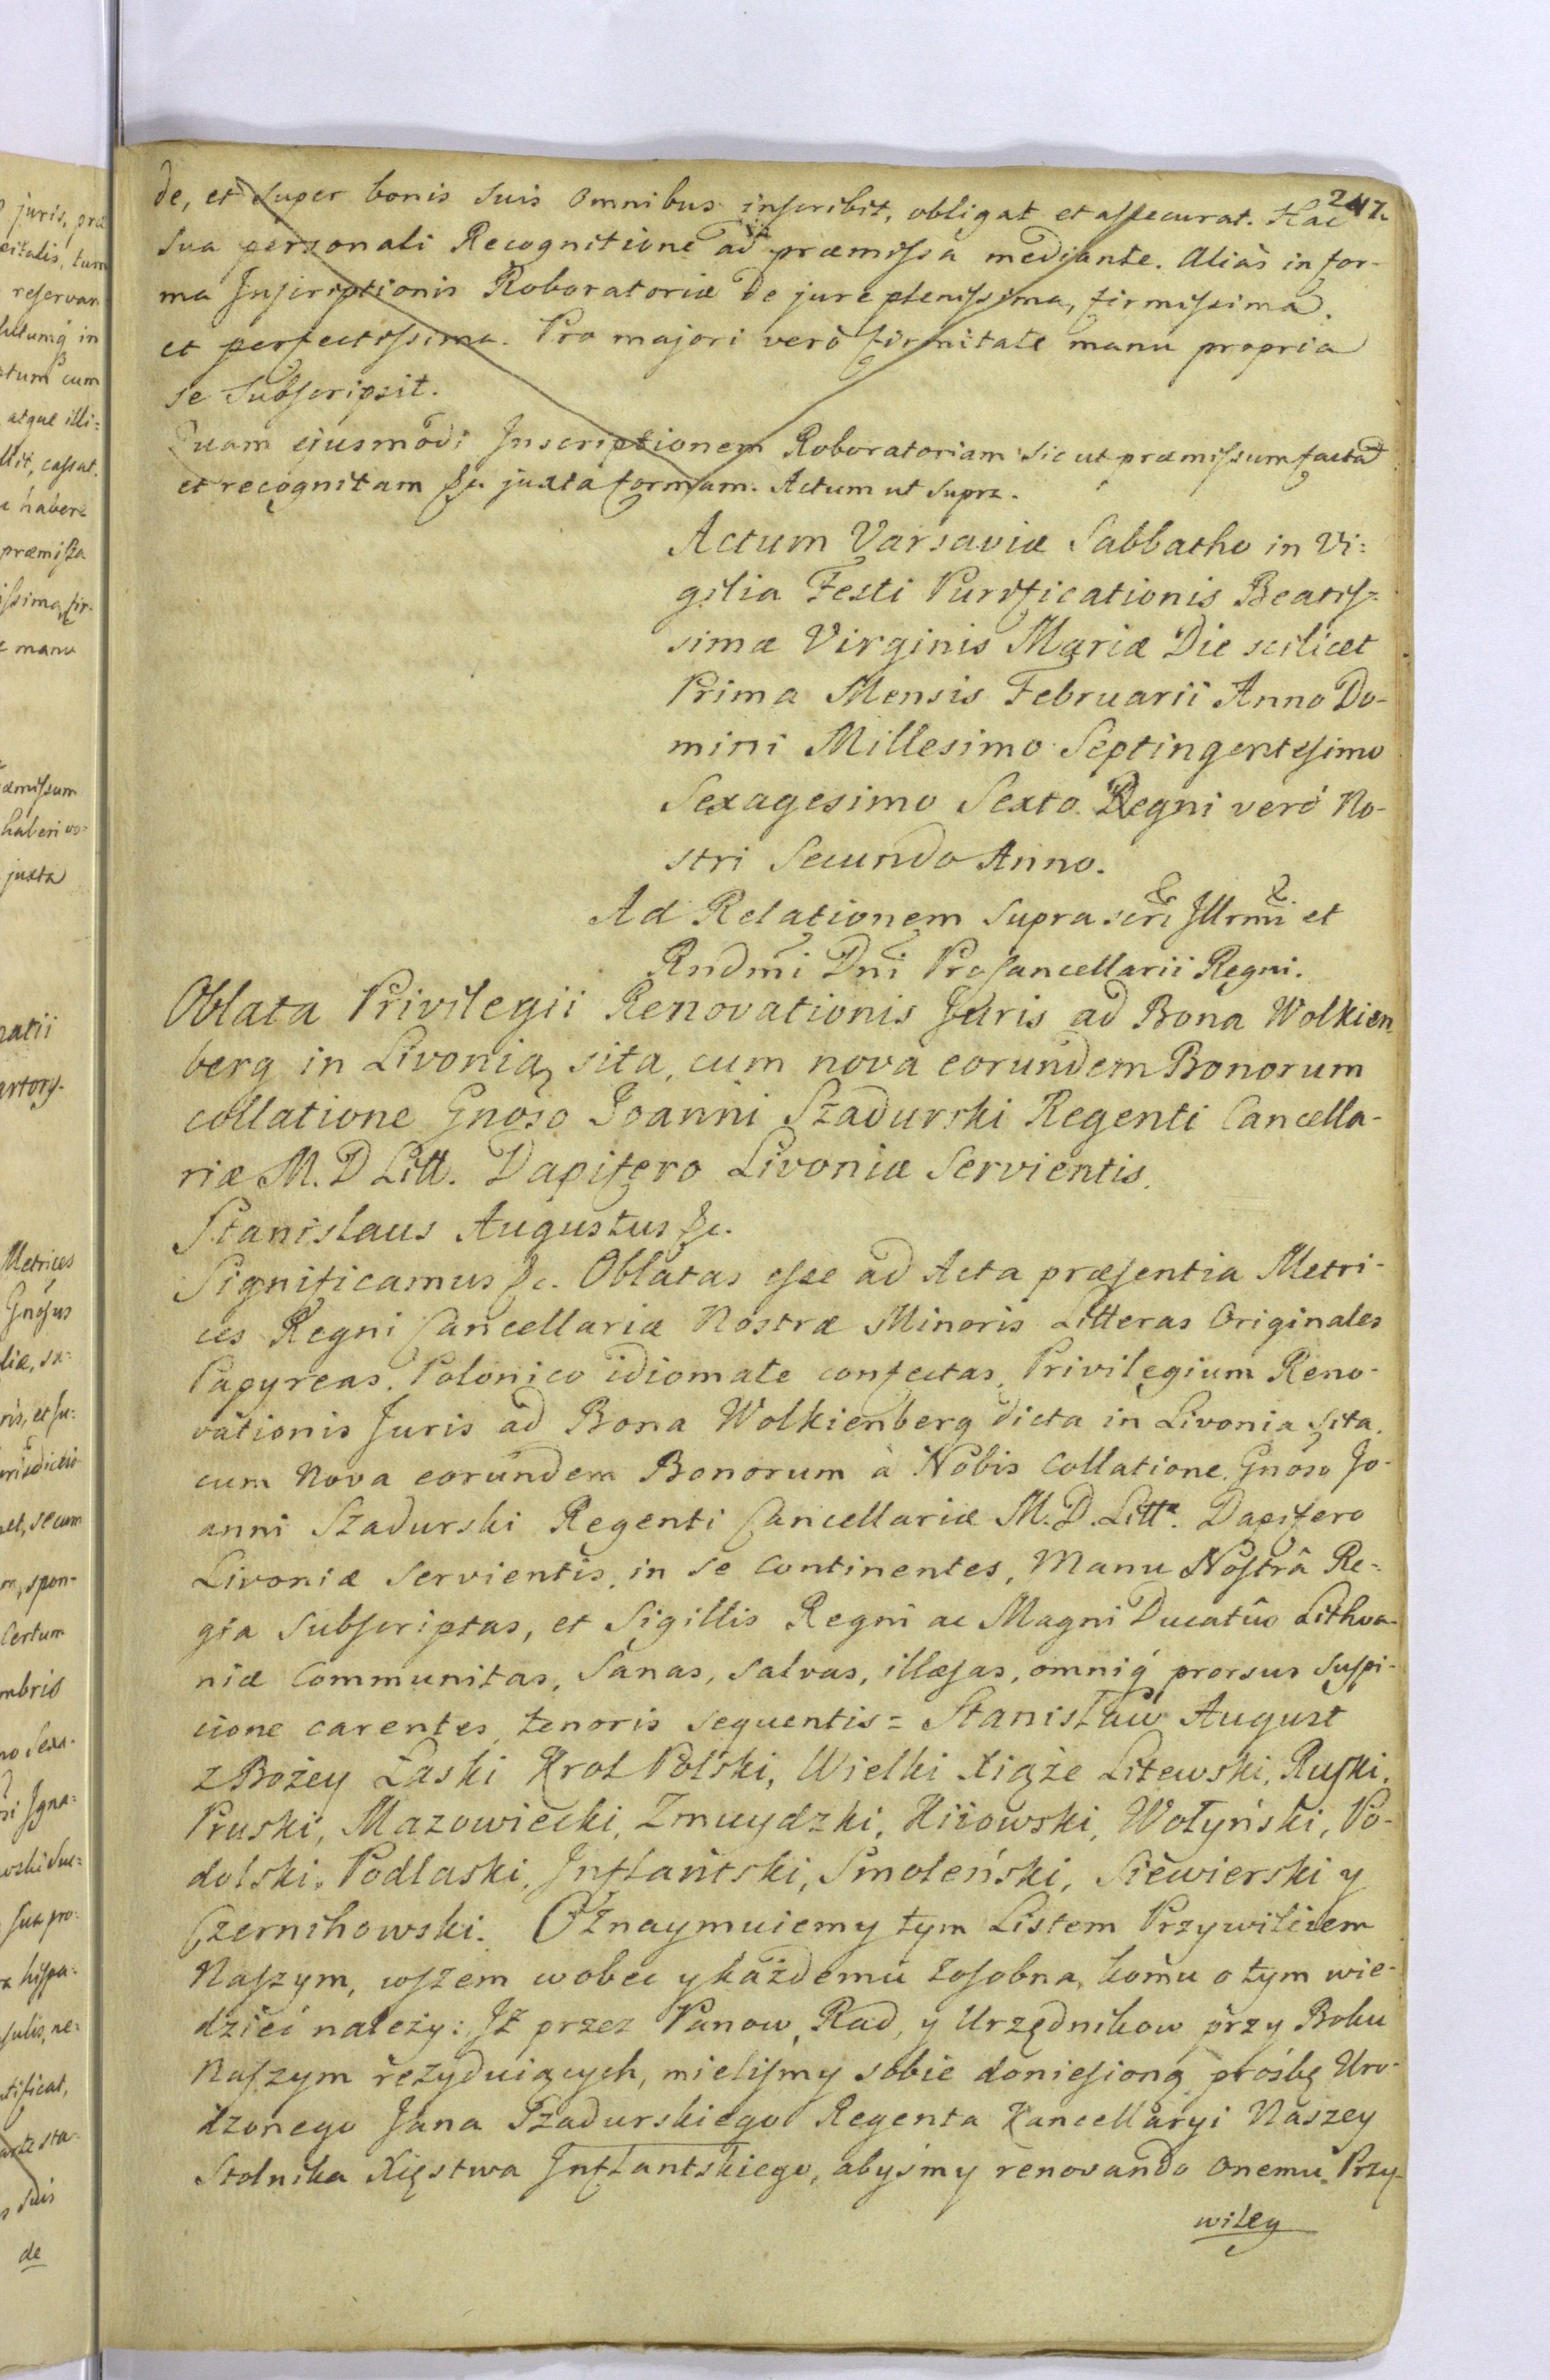 247.
de, et super bonis suis omnibus inscribit, obligat et assecurat. Hac
sua personali Recognitione ad præmissa mediante. Alias in for-
ma Inscriptionis Roboratoriæ de jure plenissima, firmissima,
et perfectissima. Pro majori verò firmitate manu propria
se subscripsit.
Quam ejusmodi Inscriptionem Roboratoriam sic ut præmissum facta
et recognitam &c. juxta formam. Actum ut supra.
Actum Varsaviæ Sabbatho in Vi=
gilia Festi Purificationis Beatis=
simæ Virginis Mariæ Die scilicet
Prima Mensis Februarii Anno Do-
mini Millesimo Septingentesimo
Sexagesimo Sexto. Regni verò No-
stri Secundo Anno.
Ad Relationem supra scri Illrmi et
Rndmi Dni Procancellarii Regni.
Oblata Privilegii Renovationis Juris ad Bona Wolkien
berg in Livonia sita, cum nova eorundem Bonorum
collatione Gnoso Joanni Szadurski Regenti Cancella-
riæ M. D Litt. Dapifero Livoniæ Servientis.
Stanislaus Augustus &c.
Significamus &c. Oblatas esse ad Acta præsentia Metri-
ces Regni Cancellariæ Nostræ Minoris Litteras Originales
Papyreas, Polonico idiomate confectas, Privilegium Reno-
vationis Juris ad Bona Wolkienberg dicta in Livonia sita,
cum Nova eorundem Bonorum à Nobis Collatione, Gnoso Jo-
anni Szadurski Regenti Cancellariæ M. D. Litt. Dapifero
Livoniæ Servientis, in se Continentes, Manu Nostrâ Re-
gia Subscriptas, et Sigillis Regni ac Magni Ducatûs Lithva-
niæ Communitas, Sanas, salvas, illæsas, omniq́ prorsus suspi-
cione carentes, tenoris sequentis = Stanisław August
z Bożey Łaski Krol Polski, Wielki Xiąże Litewski, Ruski,
Pruski, Mazowiecki, Zmuydzki, Kiiowski, Wołyński, Po-
dolski, Podlaski, Inflantski, Smoleński, Siewierski y
Czernihowski. Oznaymuiemy tym Listem Przywiliem
Naszym, wszem wobec y każdemu zosobna, komu o tym wie-
dzieć należy: Iż przez Panow, Rad, y Urzędnikow przy Boku
Naszym rezyduiących, mieliśmy sobie doniesioną prośbę Uro-
dzonego Jana Szadurskiego Regenta Kancellaryi Naszey
Stolnika Xięstwa Inflantskiego, abyśmy renovando onemu Przy-
wiley